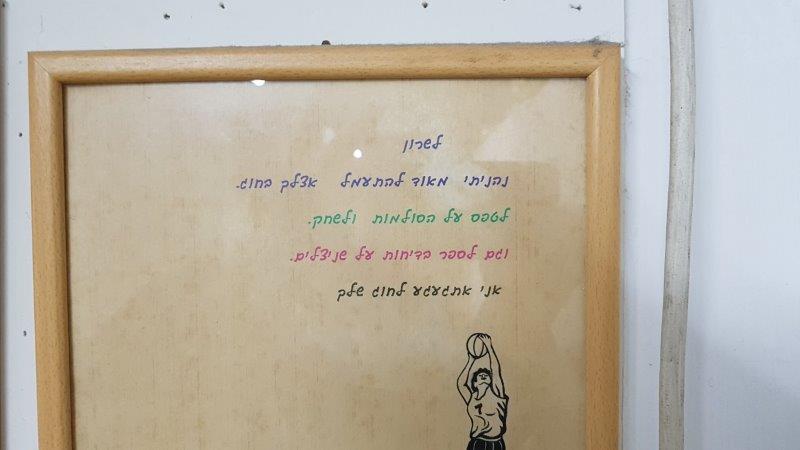 לשרון
נהניתי מאוד להתעמל אצלך בחוג.
לטפס על הסולמות ולשחק.
וגם לספר בדיחות על שניצלים.
אני אתגעגע לחוג שלך